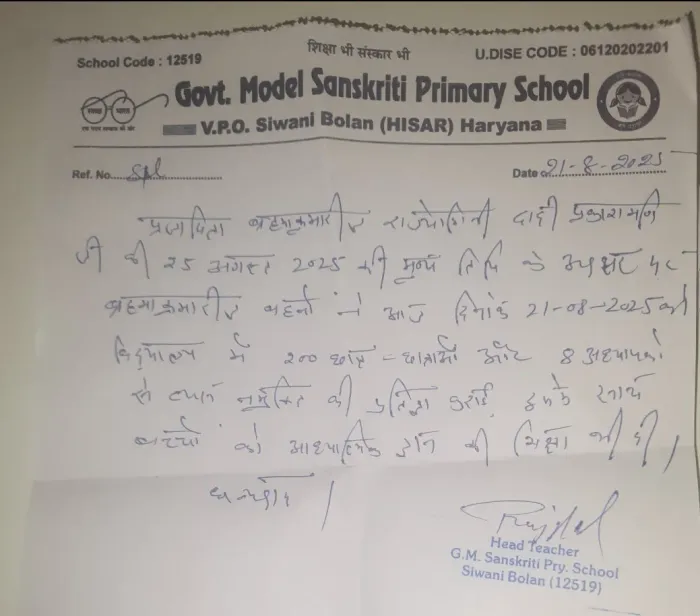 शिक्षा भी संस्कार भी
School Code : 12519
U.DISE CODE : 06120202201
Govt. Model Sanskriti Primary School
V.P.O. Siwani Bolan (HISAR) Haryana
Ref. No. Spl Date 21-8-2025
प्रजापिता ब्रह्माकुमारीज राजयोगिनी दादी प्रकाशमणि
जी की 25 अगस्त 2025 की पुण्य तिथि के अवसर पर
ब्रह्माकुमारीज बहनों ने आज दिनांक 21-08-2025 को
विद्यालय में 200 छात्र - छात्राओं और 8 अध्यापकों
से व्यसन मुक्ति की प्रतिज्ञा कराई, इसके साथ
बच्चों को आध्यात्मिक ज्ञान की शिक्षा भी दी।
धन्यवाद।
Head Teacher
G.M. Sanskriti Pry. School
Siwani Bolan (12519)